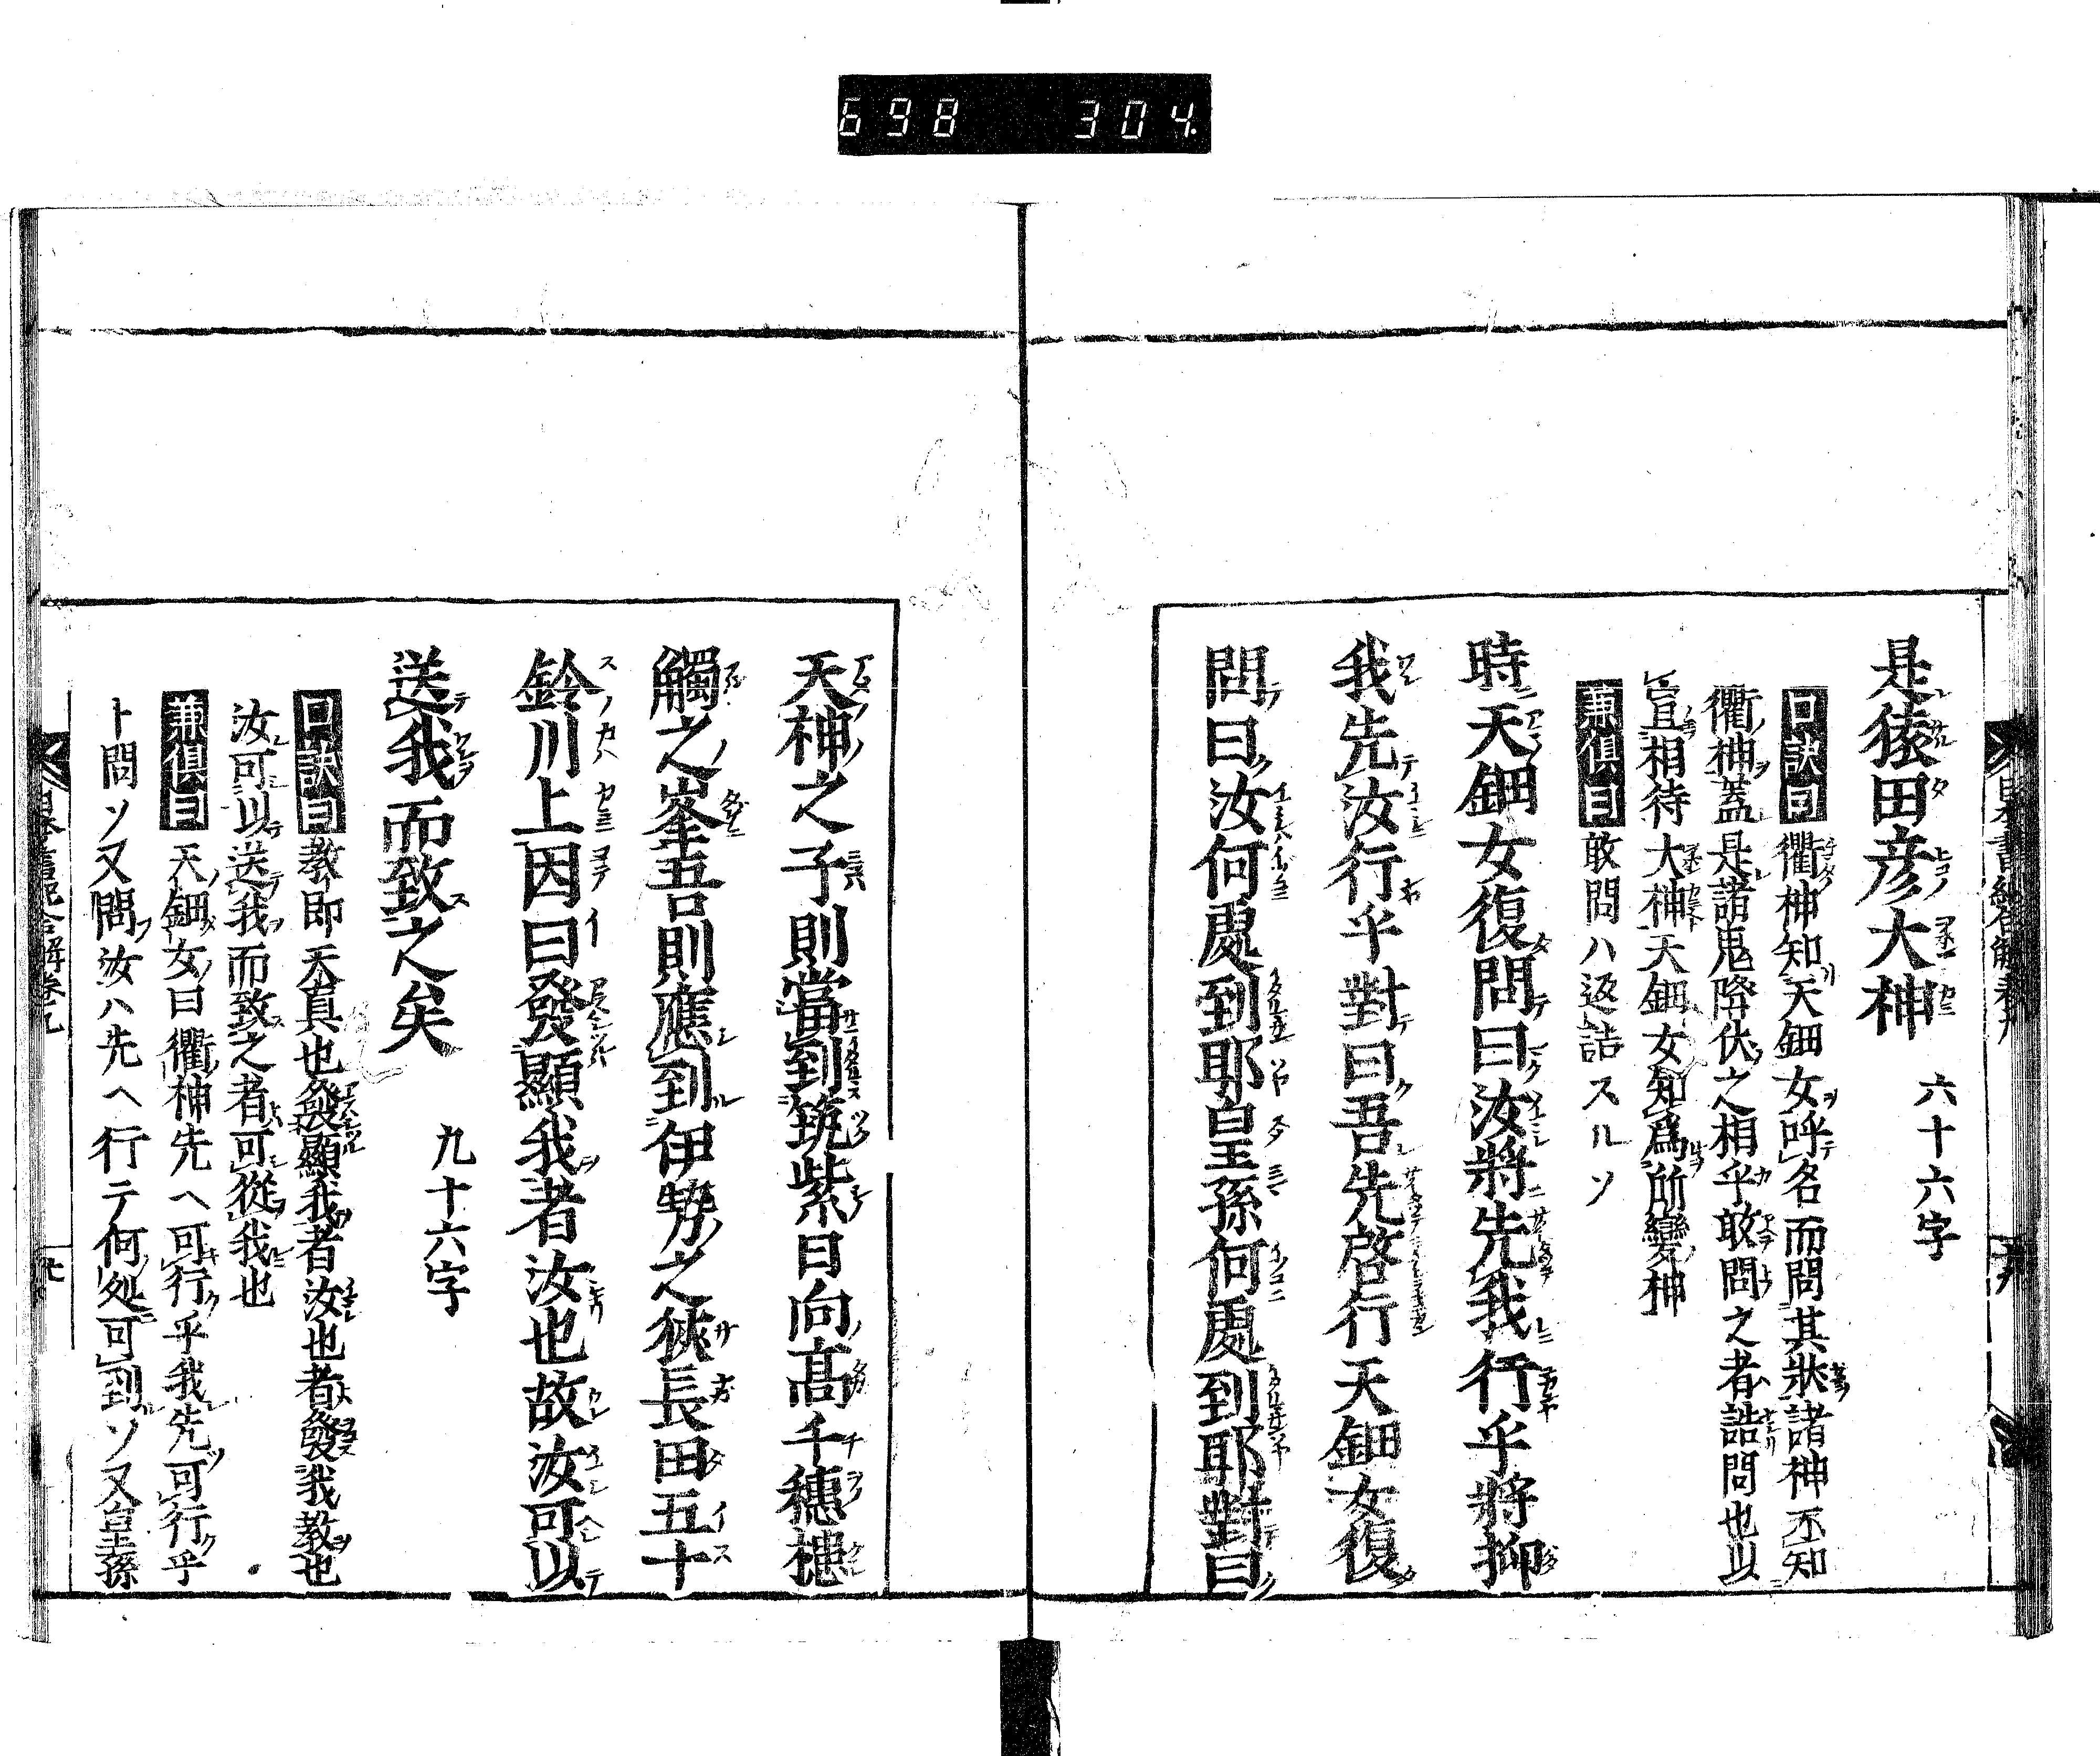 698 304
是猿田彦大神 六十六字
口訣曰 衢神知天鈿女呼名而問其狀諸神不知
衢神蓋是諸鬼降伏之相乎敢問之者詰問也以
宜相待大神天鈿女知爲所變神
兼倶曰 敢問ハ返詰スルソ
時天鈿女復問曰汝將先我行乎將抑
我先汝行乎對曰吾先啓行天鈿女復
問曰汝何處到耶皇孫何處到耶對曰
天神之子則當到筑紫日向高千穗槵
觸之峯吾則應到伊勢之狹長田五十
鈴川上因曰發顯我者汝也故汝可以
送我而致之矣 九十六字
口訣曰 教即天真也發顯我者汝也者發我教也
汝可以送我而致之者可從我也
兼倶曰 天鈿女曰衢神先ヘ可行乎我先可行乎
ト問ソ又問汝ハ先ヘ行テ何処可到ソ又皇孫